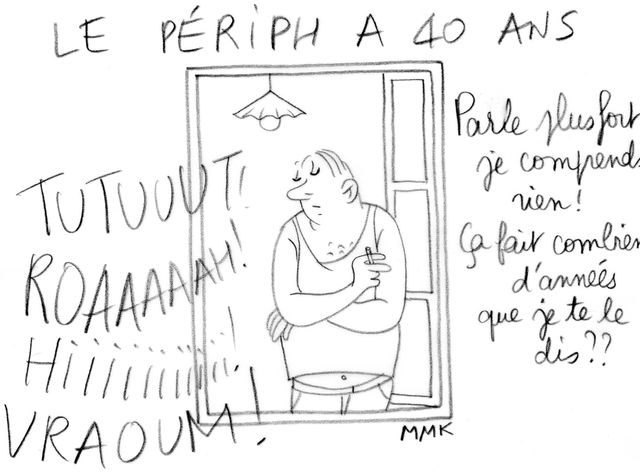 LE PÉRIPH A 40 ANS
TUTUUUT!
ROAAAAAAH!
Hiiiiiiiiiiii!
VRAOUM!
Parle plus fort
je comprends
rien!
Ça fait combien
d'annéés
que je te le
dis??
MMK